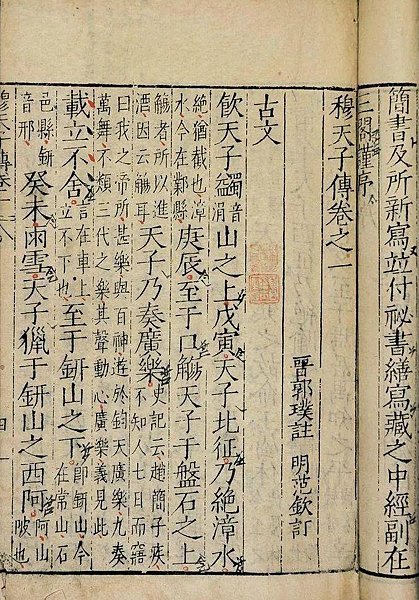 簡書及所新寫並付祕書繕寫藏之中經副在
三閣謹序
穆天子傳卷之一
晋郭璞註 明范欽訂
古文
飲天子蠲音涓山之上戊寅天子北征乃絕漳水
絕猶截也漳水今在鄴縣庚辰至于□觴天子于盤石之上
觴者所以進酒因云觴耳天子乃奏廣樂史記云趙簡子疾不知人七日而寤
曰我之帝所甚樂與百神遊於鈞天廣樂九奏萬舞不類三代之樂其聲動心廣樂義見此
載立不舍言在車上立不下也至于鈃山之下即鈃山今在常山石
邑縣鈃音邢癸未雨雪天子獵于鈃山之西阿阿山陂也
穆天子傳卷一